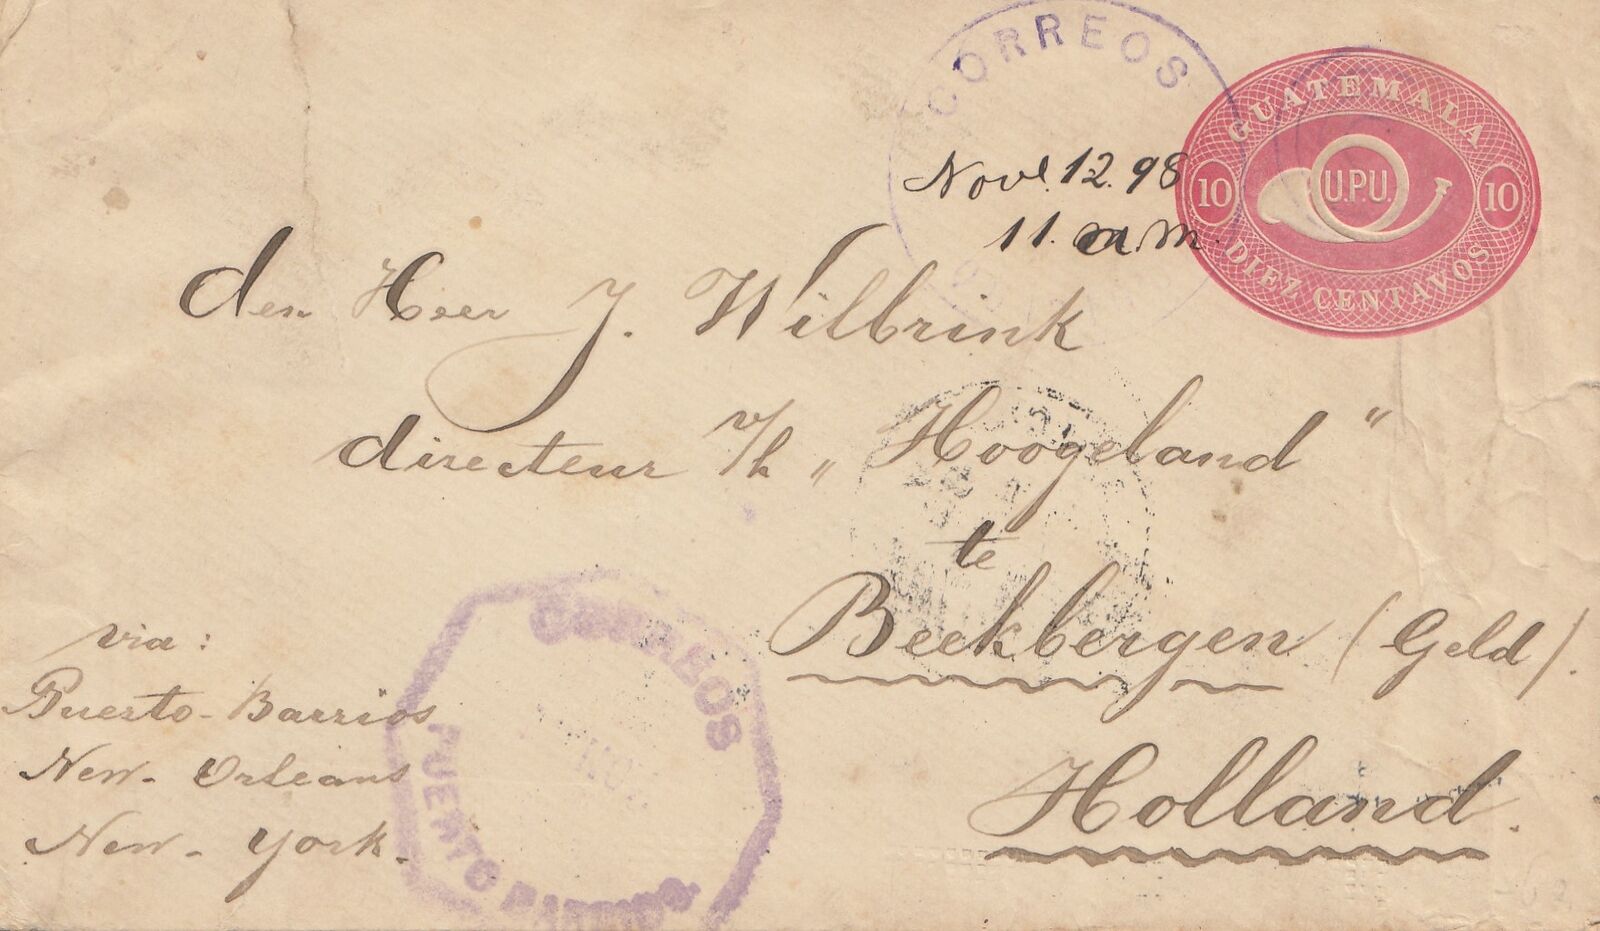 CORREOS
Nov. 12. 98
11. a.m.
GUATEMALA
10 U.P.U. 10
DIEZ CENTAVOS
den Heer J. Wilbrink
directeur v/h „Hoogeland"
te
Beekbergen (Geld).
Holland.
via:
Puerto-Barrios
New-Orleans
New-York.
CORREOS
PUERTO BARRIOS